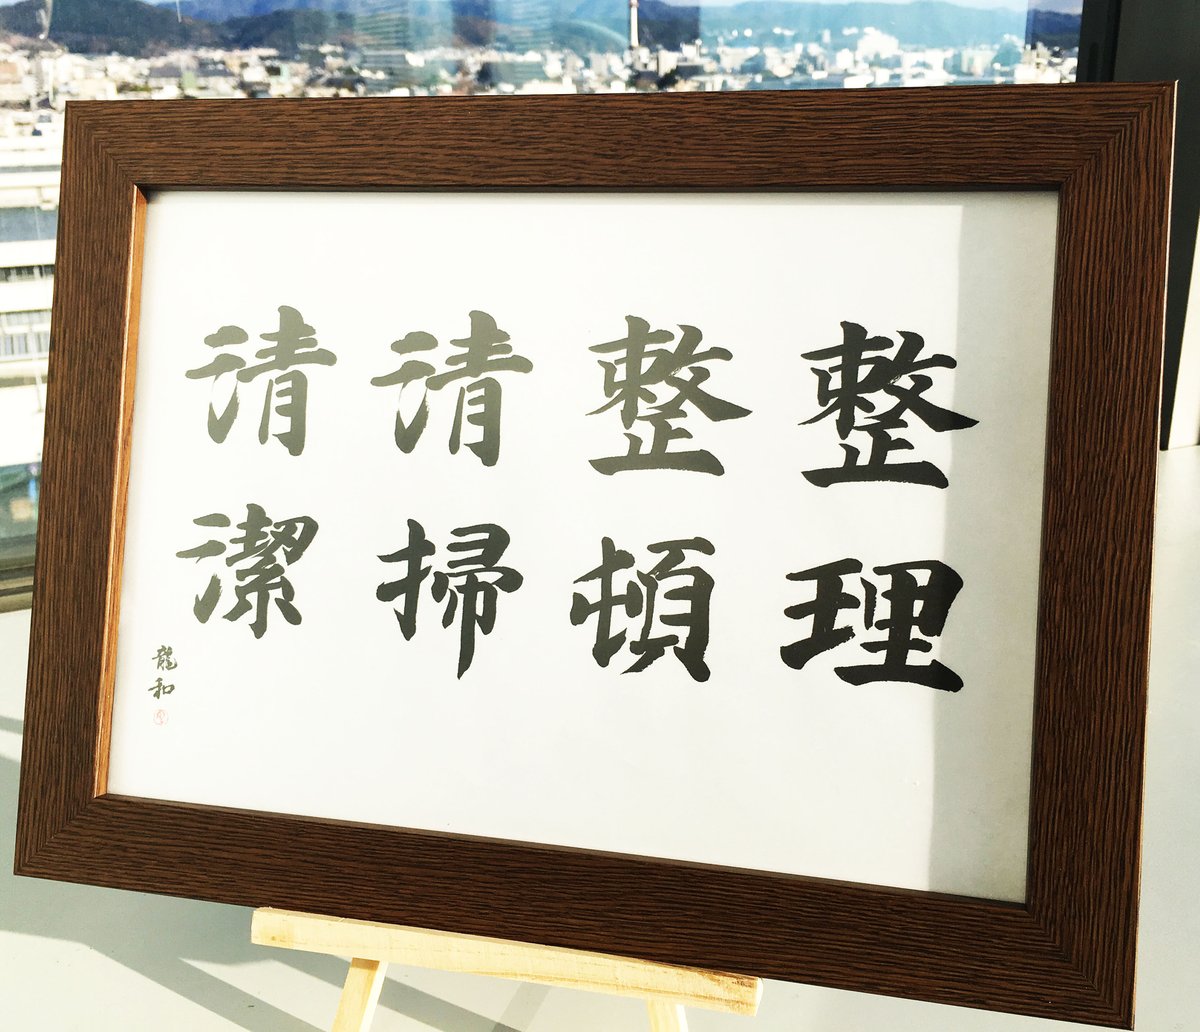 整理
整頓
清掃
清潔
龍和